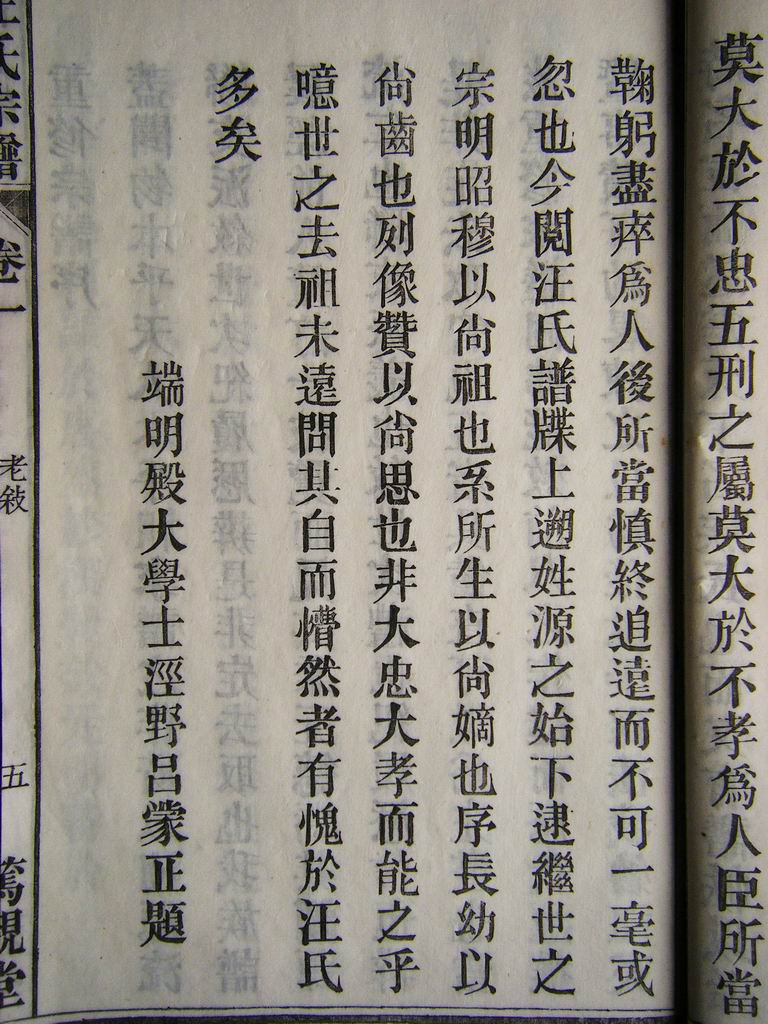 莫大於不忠五刑之屬莫大於不孝爲人臣所當
鞠躬盡瘁爲人後所當慎終追遠而不可一毫或
忽也今閱汪氏譜牒上遡姓源之始下逮繼世之
宗明昭穆以尙祖也系所生以尙嫡也序長幼以
尙齒也列像贊以尙思也非大忠大孝而能之乎
噫世之去祖未遠問其自而懵然者有愧於汪氏
多矣
端明殿大學士涇野呂蒙正題
汪氏宗譜 卷一 老敍 五 篤親堂